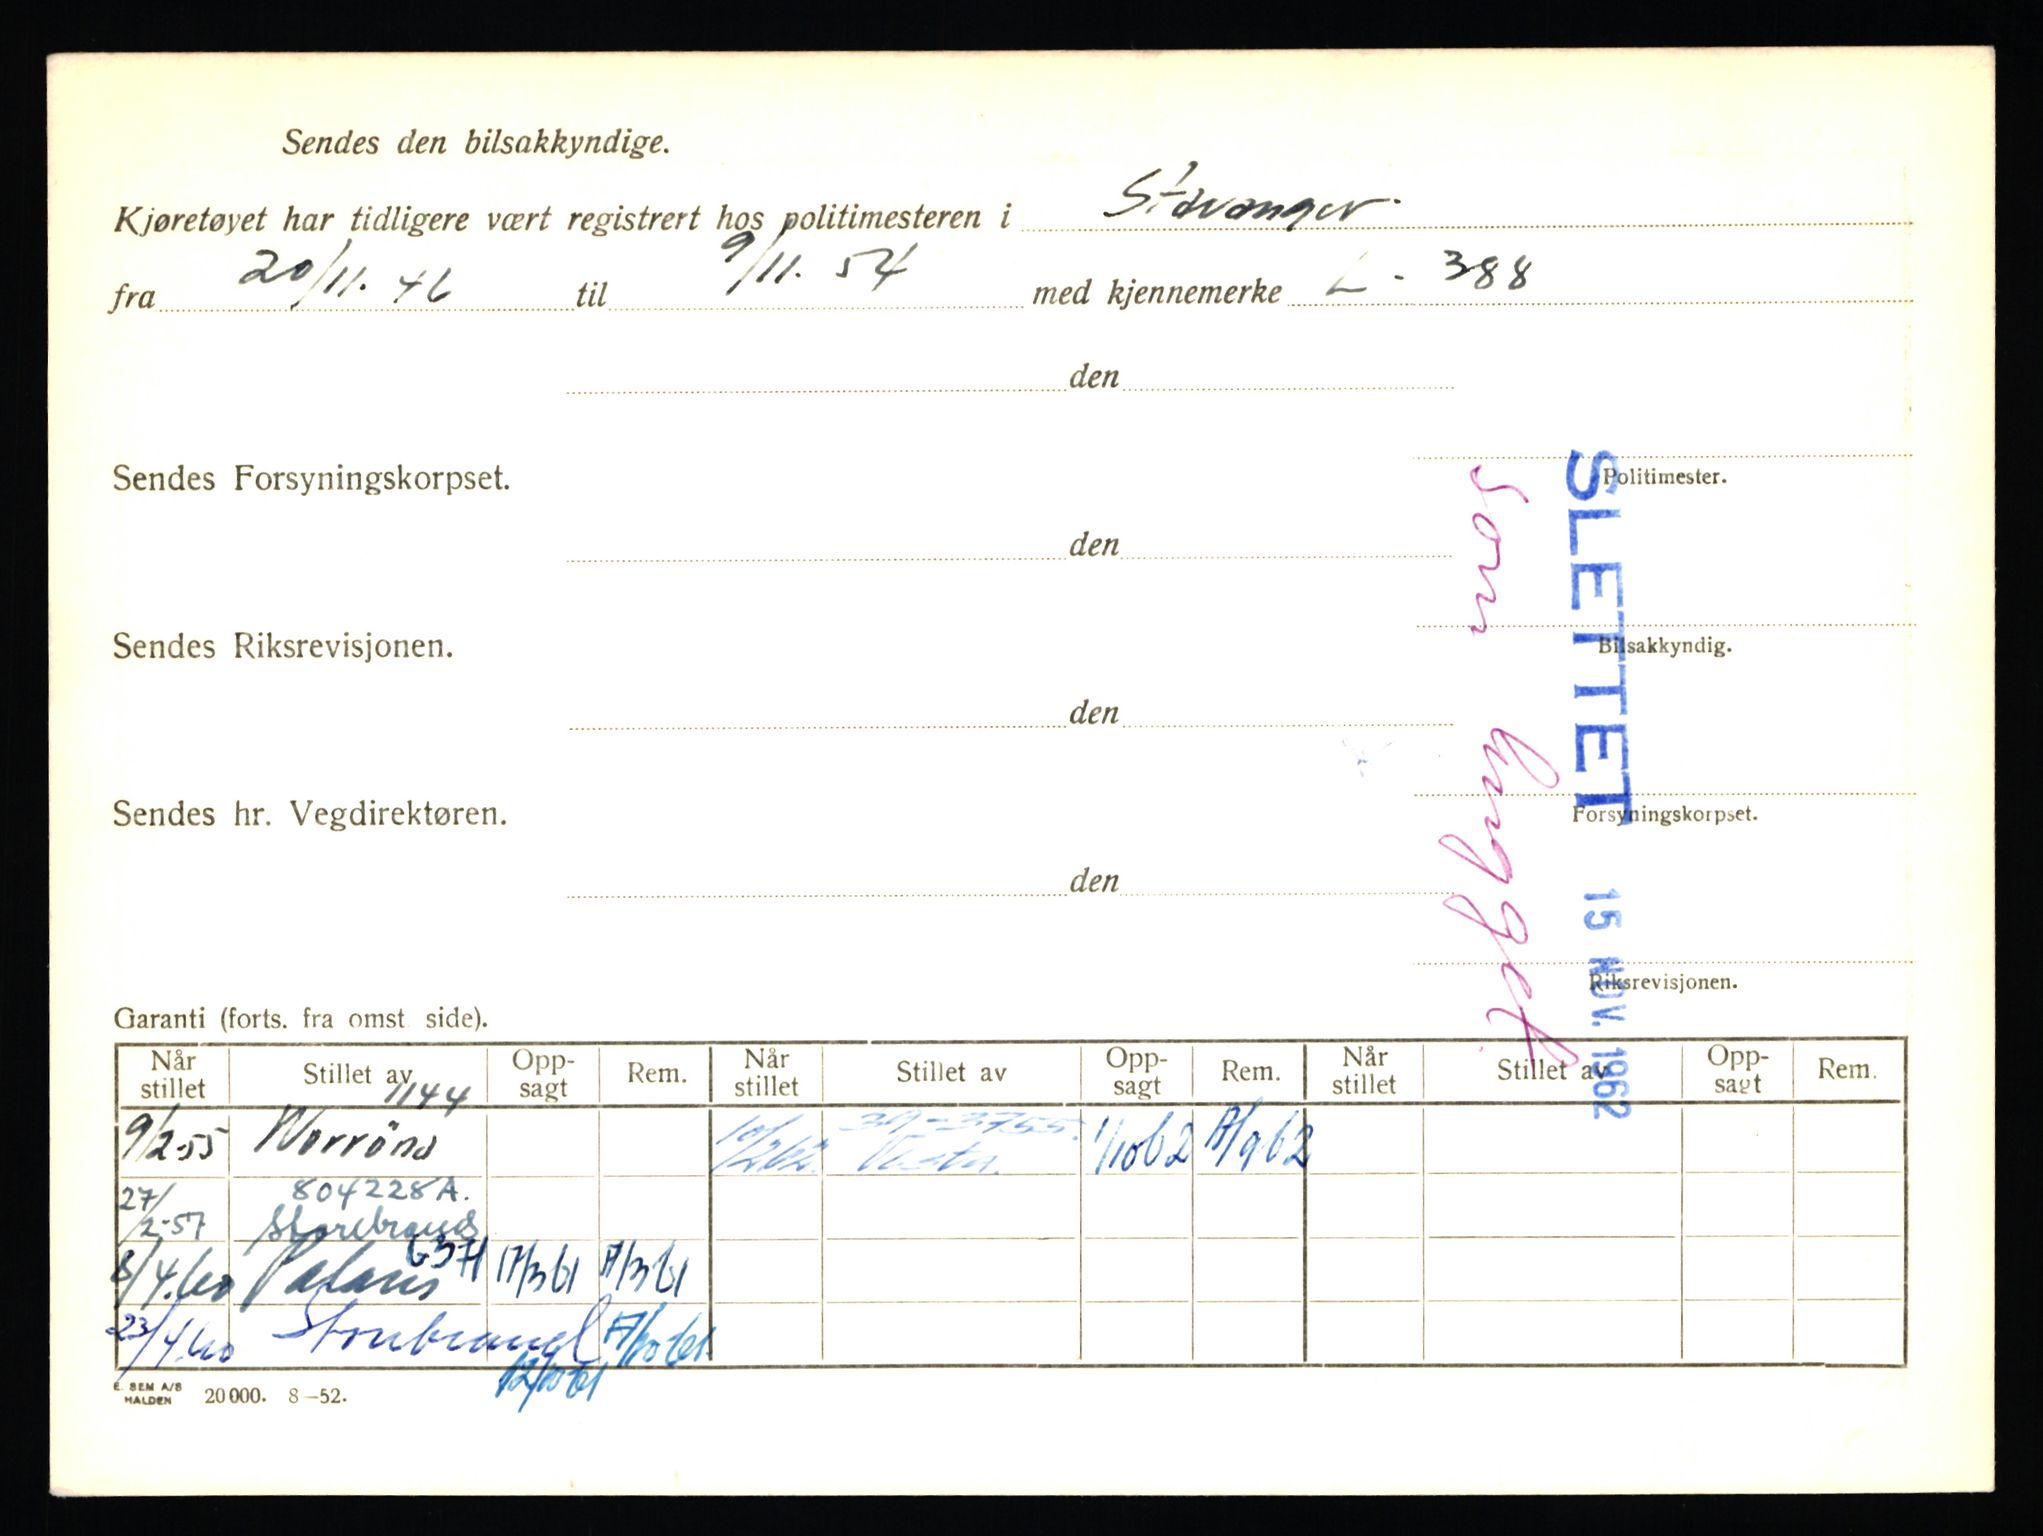 Sendes den bilsakkyndige.
Kjøretøyet har tidligere vært registrert hos politimesteren i Stavanger.
fra 20/11. 46 til 9/11. 54 med kjennemerke L - 388
den
Politimester.
Sendes Forsyningskorpset.
den
Bilsakkyndig.
Sendes Riksrevisjonen.
den
Forsyningskorpset.
Sendes hr. Vegdirektøren.
den
Riksrevisjonen.
SLETTET 15 NOV. 1962
Som hugget
Garanti (forts. fra omst. side).
Når stillet Stillet av Opp-sagt Rem. Når stillet Stillet av Opp-sagt Rem. Når stillet Stillet av Opp-sagt Rem.
1144
9/2-55 Norröna 10/2 62. 39-3755. Vesta. 1/10 62 A/9 62
27/2-57 804228A. Storebrand
8/4.60 Polaris 6371 17/3 61 A/3 61
23/4.60 Storebrand 12/10 61 A/10 61.
E. SEM A/S HALDEN 20 000. 8-52.